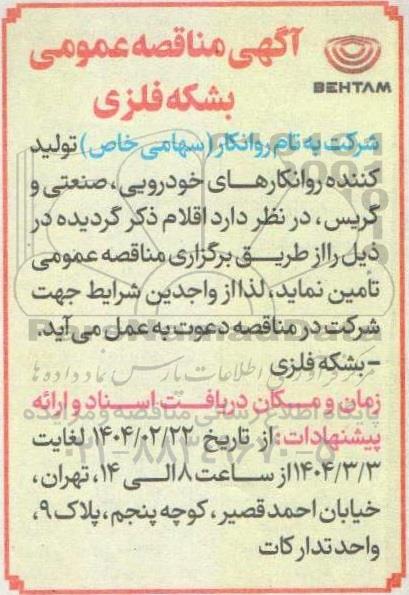 آگهی مناقصه عمومی
بشکه فلزی
BEHTAM
شرکت به تام روانکار (سهامی خاص) تولید
کننده روانکارهای خودرویی، صنعتی و
گریس، در نظر دارد اقلام ذکر گردیده در
ذیل را از طریق برگزاری مناقصه عمومی
تأمین نماید، لذا از واجدین شرایط جهت
شرکت در مناقصه دعوت به عمل می آید.
– بشکه فلزی
زمان و مکان دریافت اسناد و ارائه
پیشنهادات: از تاریخ ۱۴۰۴/۰۲/۲۲ لغایت
۱۴۰۴/۳/۳ از ساعت ۸ الی ۱۴، تهران،
خیابان احمد قصیر، کوچه پنجم، پلاک ۹،
واحد تدارکات
ParsNamadData
مرکز فرآوری اطلاعات پارس نماد داده ها
پایگاه اطلاع رسانی مناقصه و مزایده
۰۲۱-۸۸۳۴۹۶۷۰-۵